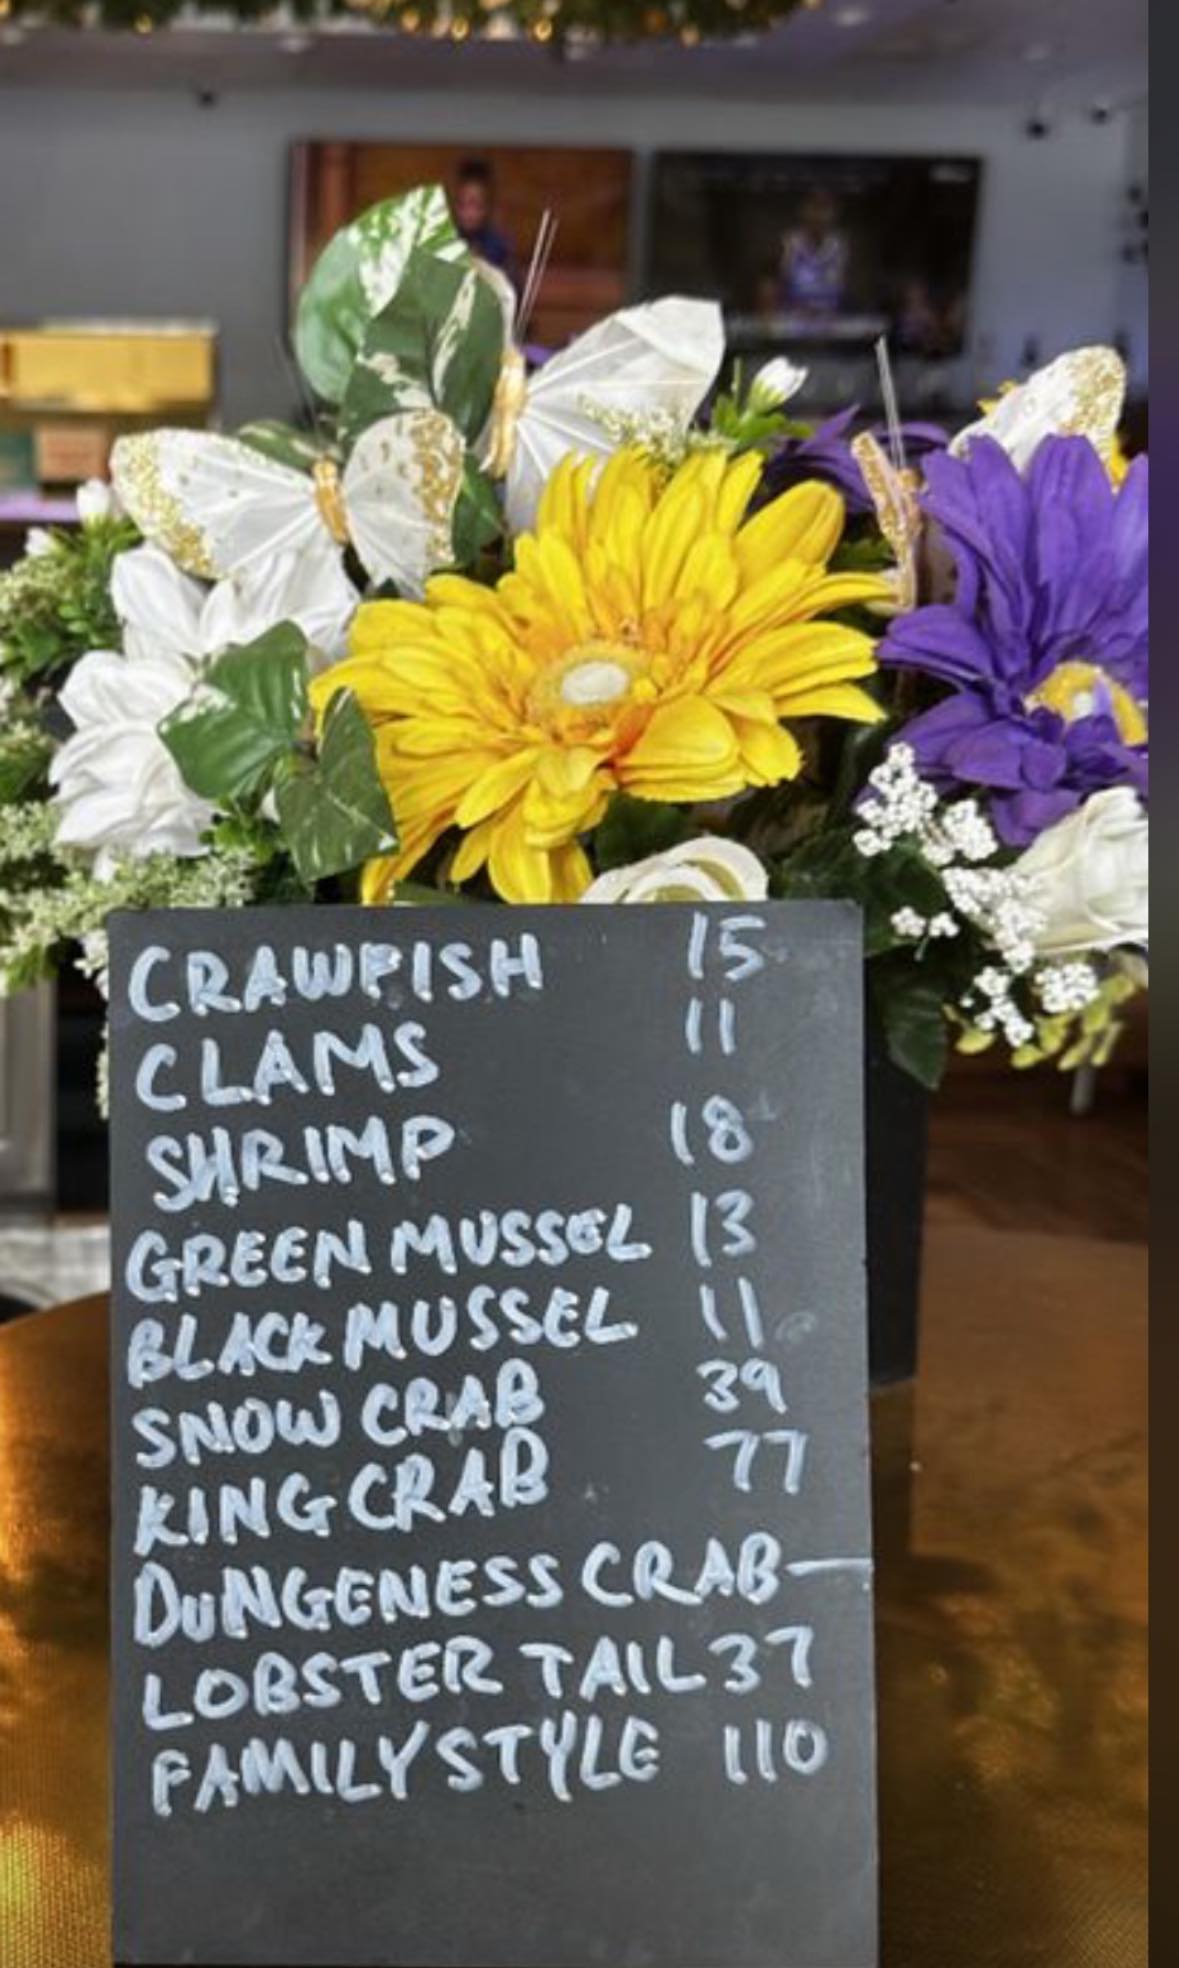 CRAWFISH 15
CLAMS 11
SHRIMP 18
GREEN MUSSEL 13
BLACK MUSSEL 11
SNOW CRAB 39
KING CRAB 77
DUNGENESS CRAB —
LOBSTER TAIL 37
FAMILY STYLE 110